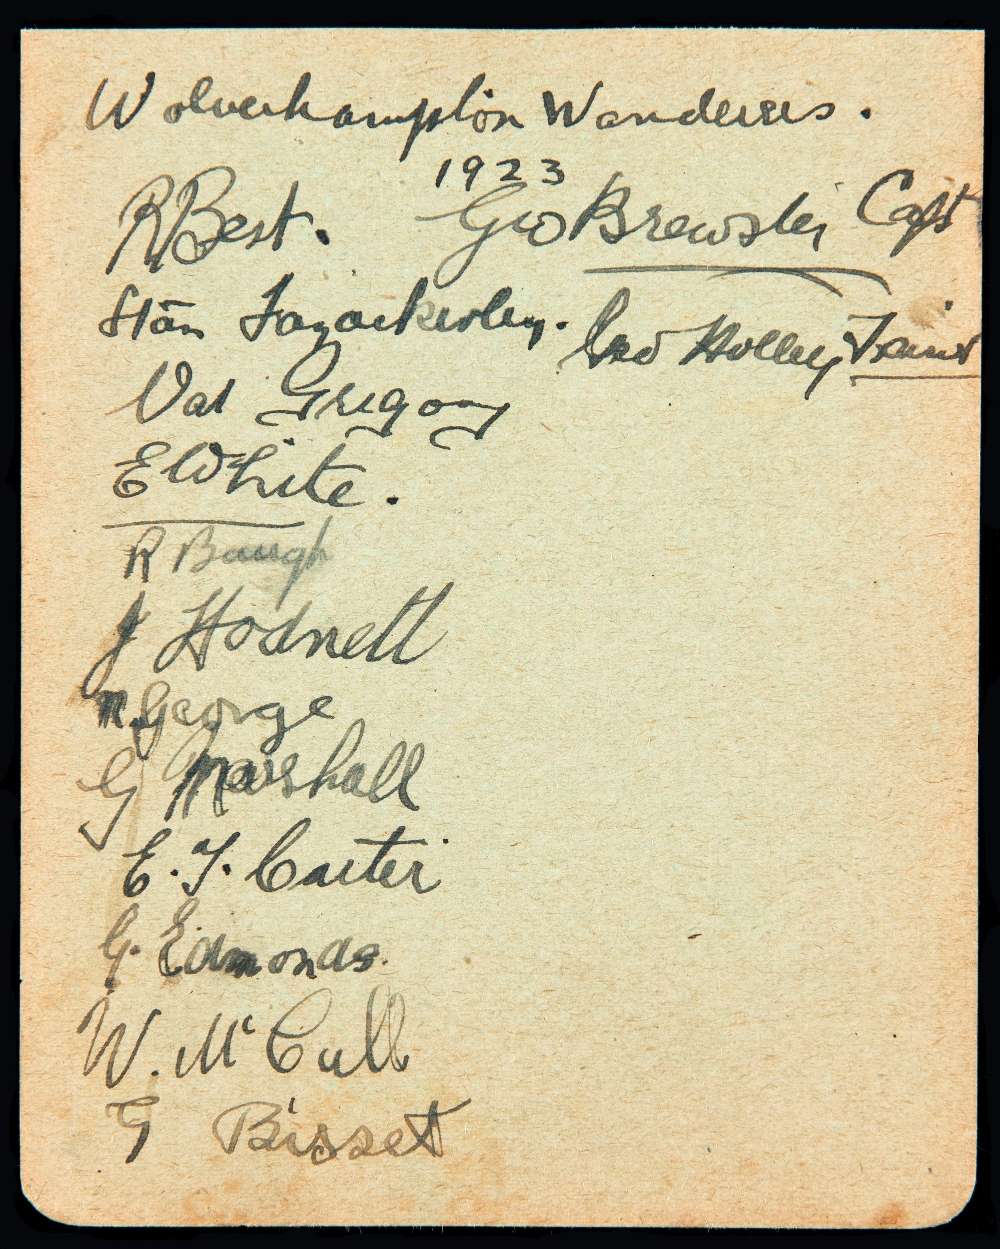 Wolverhampton Wanderers.
1923
R Best. Geo Brewster Capt
Stan Fazackerley. Geo Holley Trainer
Val Gregory
E White.
R Baugh
J Hodnett
N. George
G Marshall
E. T. Carter
G. Edmonds.
W. McCall
G Bisset